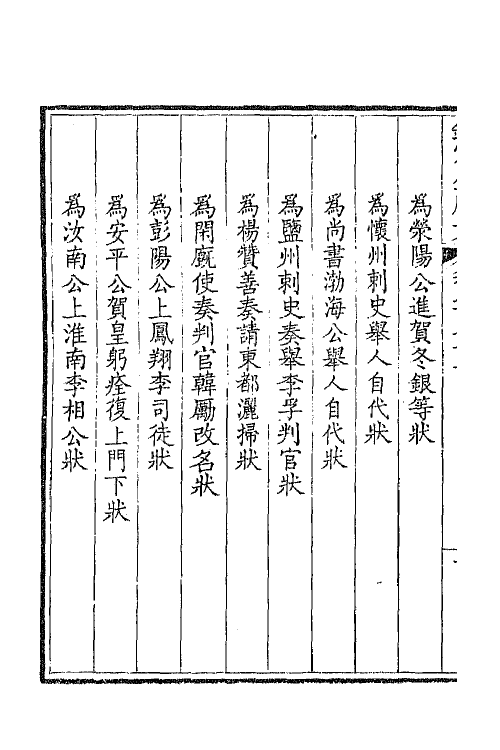 為滎陽公進賀冬銀等狀
為懷州刺史舉人自代狀
為尚書渤海公舉人自代狀
為鹽州刺史奏舉李孚判官狀
為楊贊善奏請東都灑掃狀
為閑廐使奏判官韓勵改名狀
為彭陽公上鳳翔李司徒狀
為安平公賀皇躬痊復上門下狀
為汝南公上淮南李相公狀